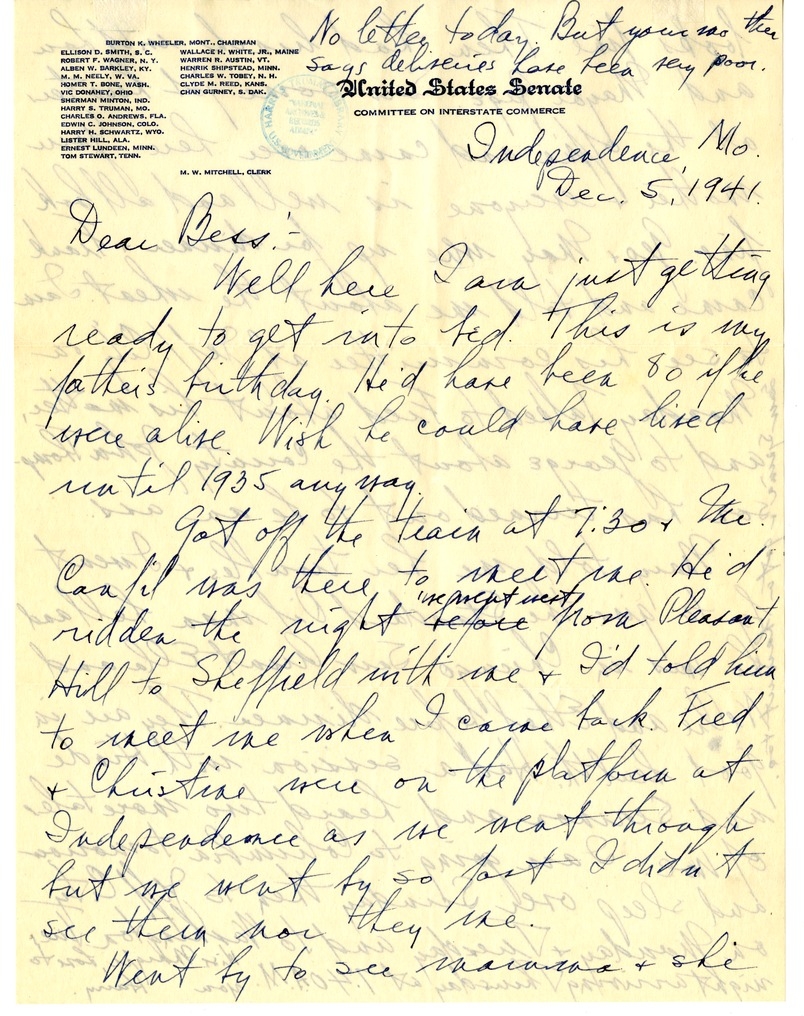 No letter today. But your mother
says deliveries have been very poor.
BURTON K. WHEELER, MONT., CHAIRMAN
ELLISON D. SMITH, S. C.
ROBERT F. WAGNER, N. Y.
ALBEN W. BARKLEY, KY.
M. M. NEELY, W. VA.
HOMER T. BONE, WASH.
VIC DONAHEY, OHIO
SHERMAN MINTON, IND.
HARRY S. TRUMAN, MO.
CHARLES O. ANDREWS, FLA.
EDWIN C. JOHNSON, COLO.
HARRY H. SCHWARTZ, WYO.
LISTER HILL, ALA.
ERNEST LUNDEEN, MINN.
TOM STEWART, TENN.
WALLACE H. WHITE, JR., MAINE
WARREN R. AUSTIN, VT.
HENRIK SHIPSTEAD, MINN.
CHARLES W. TOBEY, N. H.
CLYDE M. REED, KANS.
CHAN GURNEY, S. DAK.
M. W. MITCHELL, CLERK
United States Senate
COMMITTEE ON INTERSTATE COMMERCE
Independence, Mo.
Dec. 5, 1941.
Dear Bess:-
Well here I am just getting
ready to get into bed. This is my
father's birthday. He'd have been 80 if he
were alive. Wish he could have lived
until 1935 anyway.
Got off the train at 7:30 & Mr.
Canfil was there to meet me. He'd
we went west
ridden the night before from Pleasant
Hill to Sheffield with me & I'd told him
to meet me when I came back. Fred
& Christine were on the platform at
Independence as we went through
but we went by so fast I didn't
see them nor they me.
Went by to see mamma & she